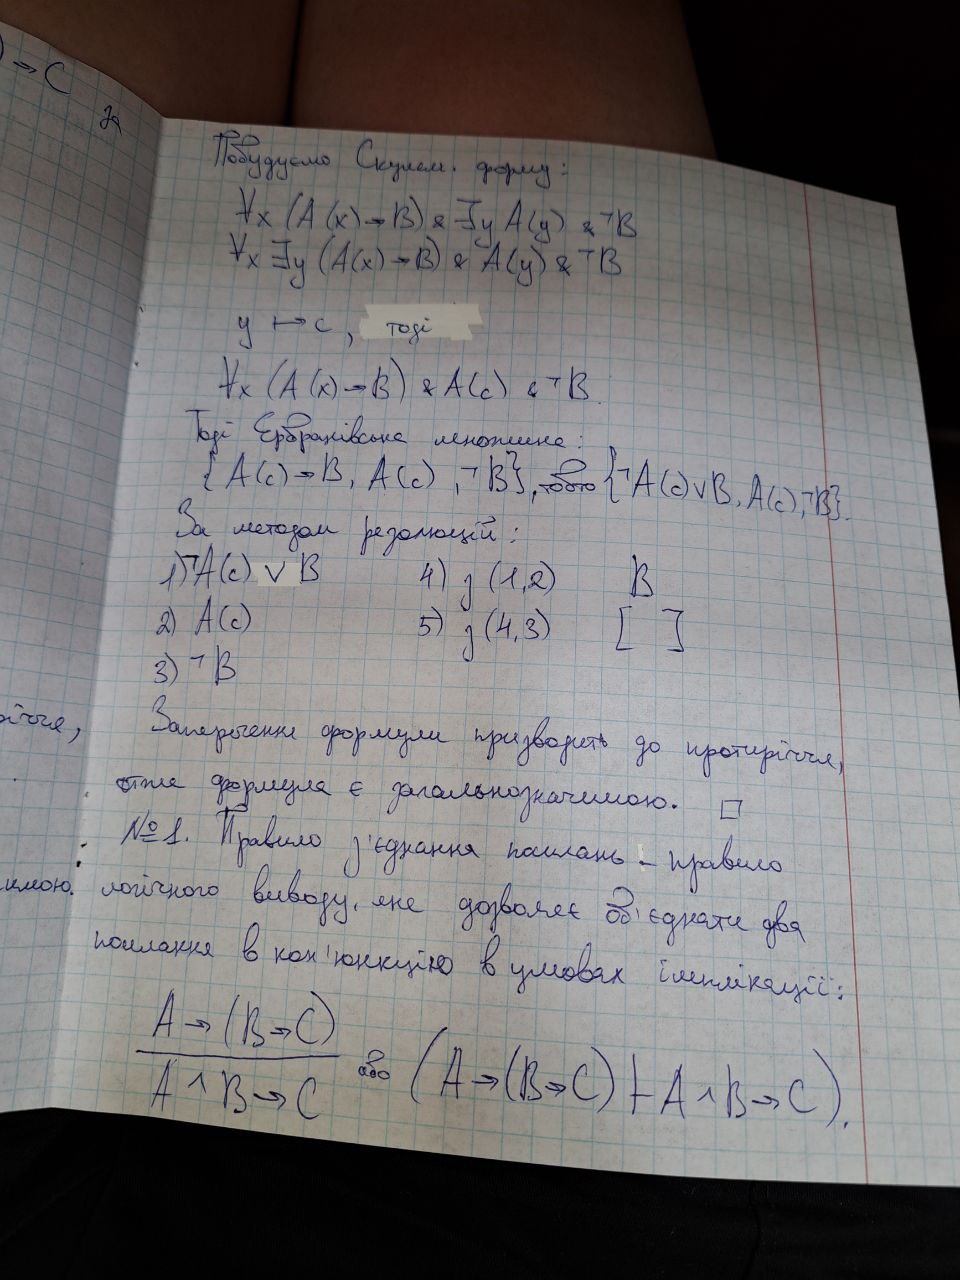 ) → C
за
Побудуємо Скулем. форму:
∀x (A(x) → B) & ∃y A(y) & ¬B
∀x ∃y (A(x) → B) & A(y) & ¬B
y ↦ c, тоді
∀x (A(x) → B) & A(c) & ¬B.
Тоді Ербранівська множина:
{A(c) → B, A(c), ¬B}, тобто {¬A(c) ∨ B, A(c), ¬B}.
За методом резолюцій:
1) ¬A(c) ∨ B 4) з (1,2) B
2) A(c) 5) з (4,3) [ ]
3) ¬B
Заперечення формули призводить до протиріччя,
отже формула є загальнозначимою. □
№1. Правило з'єднання посилань - правило
логічного виводу, яке дозволяє об'єднати два
посилання в кон'юнкцію в умовах імплікації:
A → (B → C)
A ∧ B → C
або (A → (B → C) ⊢ A ∧ B → C).